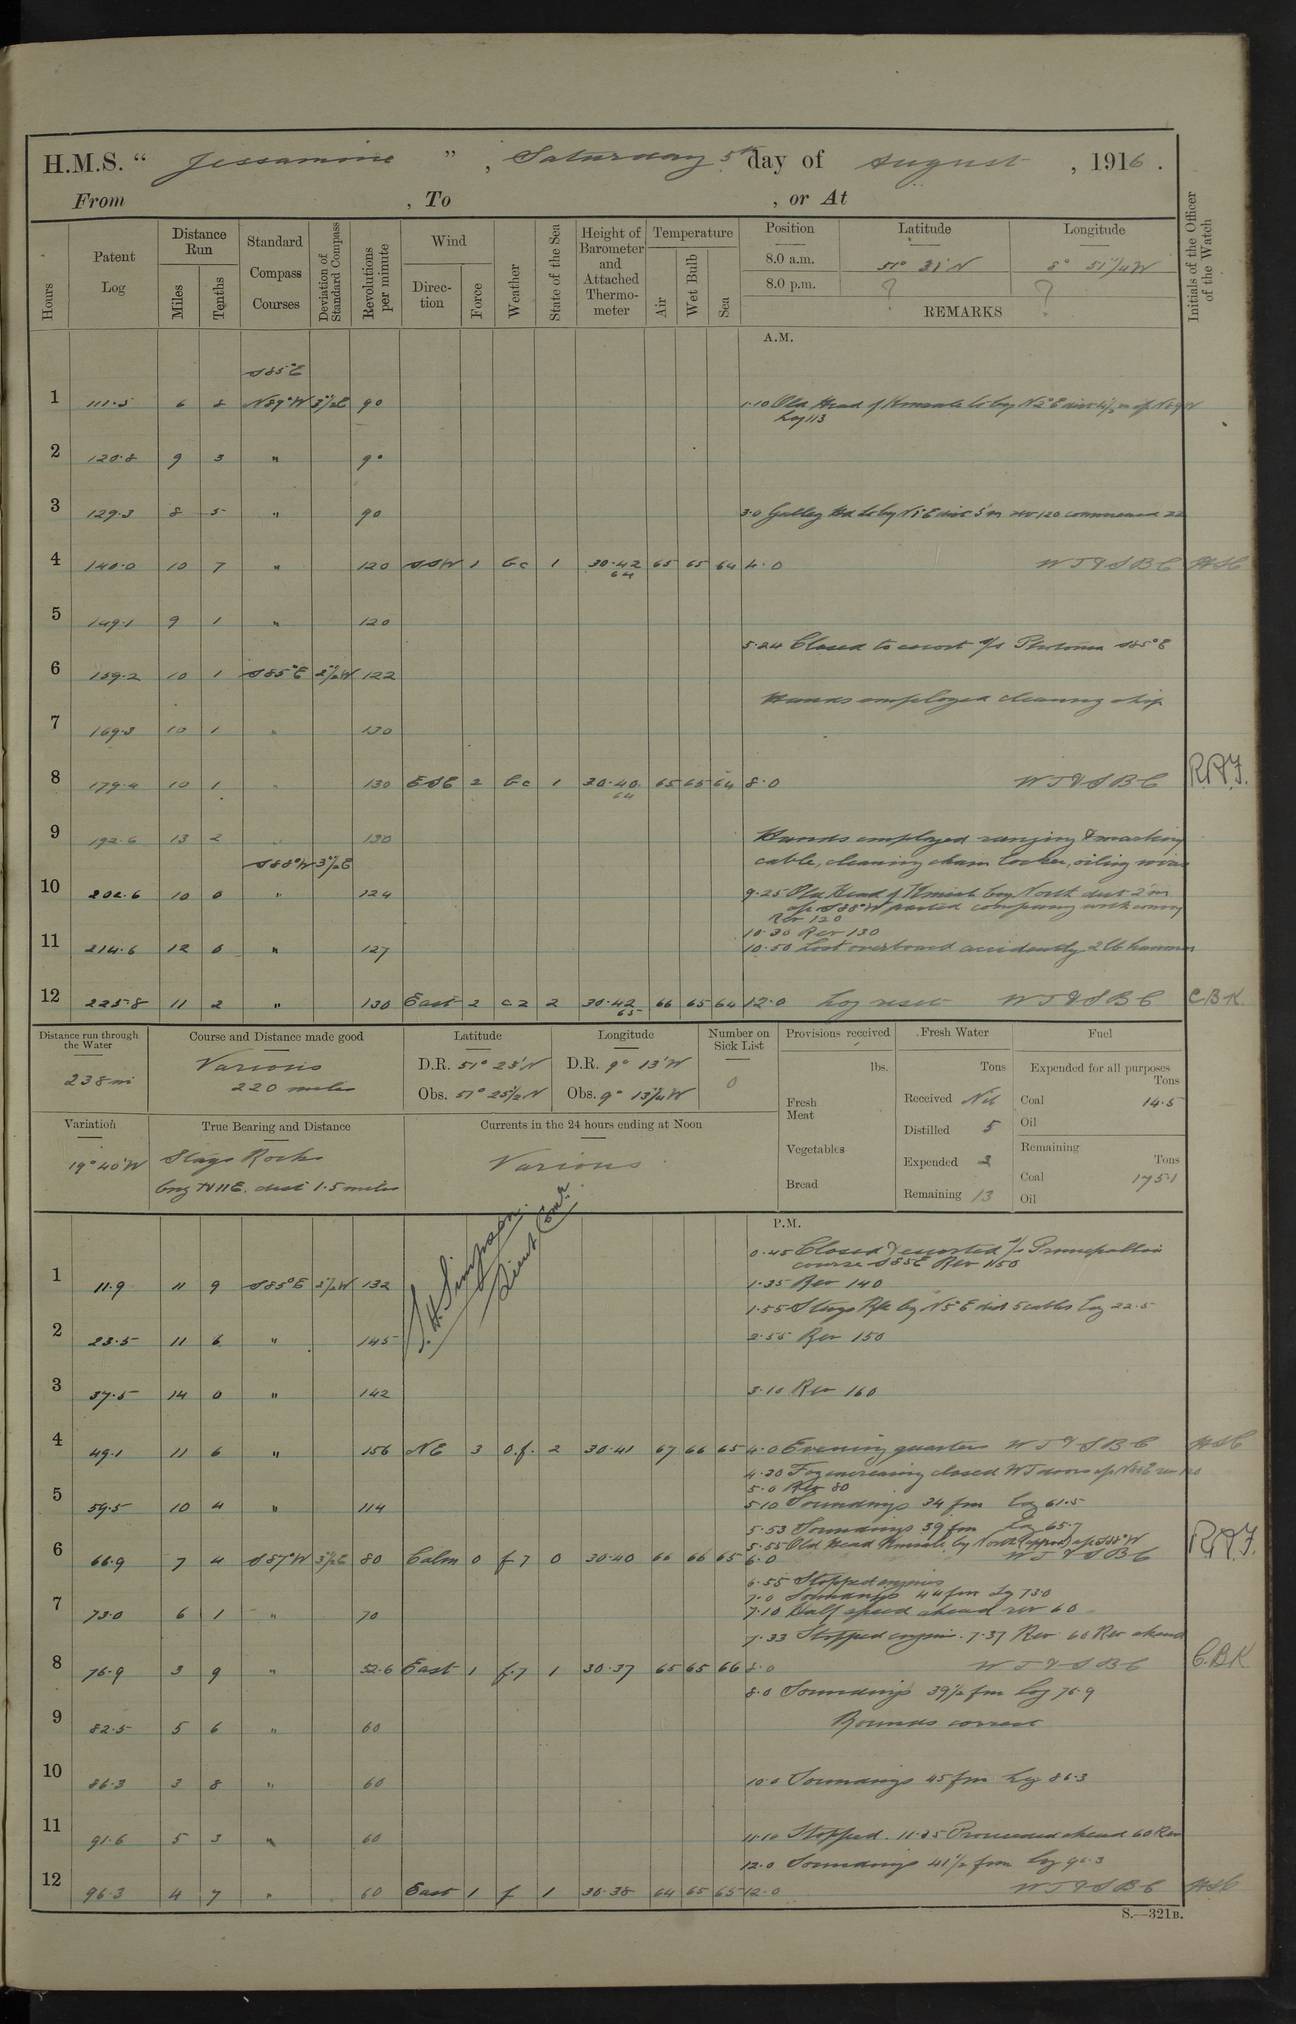 H.M.S. “ Jessamine ” , Saturday 5th day of August , 1916 .
From , To , or At
Hours
Patent Log
Distance Run
Miles
Tenths
Standard Compass Courses
Deviation of Standard Compass
Revolutions per minute
Wind
Direction
Force
Weather
State of the Sea
Height of Barometer and Attached Thermometer
Temperature
Air
Wet Bulb
Sea
Position Latitude Longitude
8.0 a.m. 51° 31' N 8° 51 1/4 W
8.0 p.m. ? ?
REMARKS
Initials of the Officer of the Watch
A.M.
S85°E
1 111.5 6 8 N89°W 3 1/2E 90 1.10 Old Head of Kinsale Lt brg N2°E
Log 113
2 120.8 9 3 " 90
3 129.3 8 5 " 90 3.0 Galley Hd Lt brg N5°E dist 5'm rev 120 commenced ZZ
4 140.0 10 7 " 120 SSW 1 bc 1 30.42 64 65 65 64 4.0 W T & S B C
5 149.1 9 1 " 120
5.24 Closed to escort S/S S85°E
6 159.2 10 1 S85°E 2 1/2W 122
Hands employed cleaning ship
7 169.3 10 1 " 130
8 179.4 10 1 " 130 ESE 2 bc 1 30.40 64 65 65 64 8.0 W T & S B C R.A.F.
9 192.6 13 2 " 130 Hands employed ranging & marking
S88°W 3 1/2E cable, cleaning chain locker, oiling
10 202.6 10 0 " 124 9.25 Old Head of Kinsale brg North dist 2'm
a/c S88°W parted company with convoy
Rev 120
10.30 Rev 130
11 214.6 12 0 " 127 10.50 Lost overboard accidently 2 lb hammer
12 225.8 11 2 " 130 East 2 cz 2 30.42 65 66 65 64 12.0 Log reset W T & S B C C.B.K
Distance run through the Water
238 mi
Course and Distance made good
Various
220 miles
Latitude
D.R. 51° 25' N
Obs. 51° 25 1/2 N
Longitude
D.R. 9° 13' W
Obs. 9° 13 1/4 W
Number on Sick List
0
Provisions received
lbs.
Fresh Meat
Vegetables
Bread
Fresh Water
Tons
Received Nil
Distilled 5
Expended 3
Remaining 13
Fuel
Expended for all purposes
Tons
Coal 14.5
Oil
Remaining
Tons
Coal 175.1
Oil
Variation
19° 40' W
True Bearing and Distance
Stags Rocks
brg N11E. dist 1.5 miles
Currents in the 24 hours ending at Noon
Various
S.H. Simpson.
Lieut Comr.
P.M.
0.45 Closed & escorted S/S
course S85E Rev 150
1 11.9 11 9 S85°E 2 1/2W 132 1.35 Rev 140
1.55 Stags Rks brg N5°E dist 5 cables Log 22.5
2 23.5 11 6 " 145 2.55 Rev 150
3 37.5 14 0 " 142 3.10 Rev 160
4 49.1 11 6 " 156 NE 3 o.f. 2 30.41 67 66 65 4.0 Evening quarters W T & S B C
4.30 Fog increasing closed W T doors
5.0 Rev 80
5 59.5 10 4 " 114 5.10 Soundings 34 fm Log 61.5
5.53 Soundings 39 fm Log 65.7
5.55 Old Head Kinsale brg North (approx) a/c S88°W
6 66.9 7 4 S87°W 3 1/2E 80 Calm 0 f.7 0 30.40 66 66 65 6.0 W T & S B C R.A.F.
6.55 Stopped engines
7.0 Soundings 44 fm Log 73.0
7 73.0 6 1 " 70 7.10 Half speed ahead rev 60
7.33 Stopped engines. 7.37 Rev 60 Rev ahead
8 76.9 3 9 " 52.6 East 1 f.7 1 30.37 65 65 66 8.0 W T & S B C C.B.K
8.0 Soundings 39 1/2 fm Log 76.9
9 82.5 5 6 " 60 Rounds correct
10 86.3 3 8 " 60 10.0 Soundings 45 fm Log 86.3
11 91.6 5 3 " 60 11.10 Stopped. 11.25 Proceeded ahead 60 Rev
12.0 Soundings 41 1/2 fm Log 96.3
12 96.3 4 7 " 60 East 1 f 1 30.38 64 65 65 12.0 W T & S B C
S.—321B.